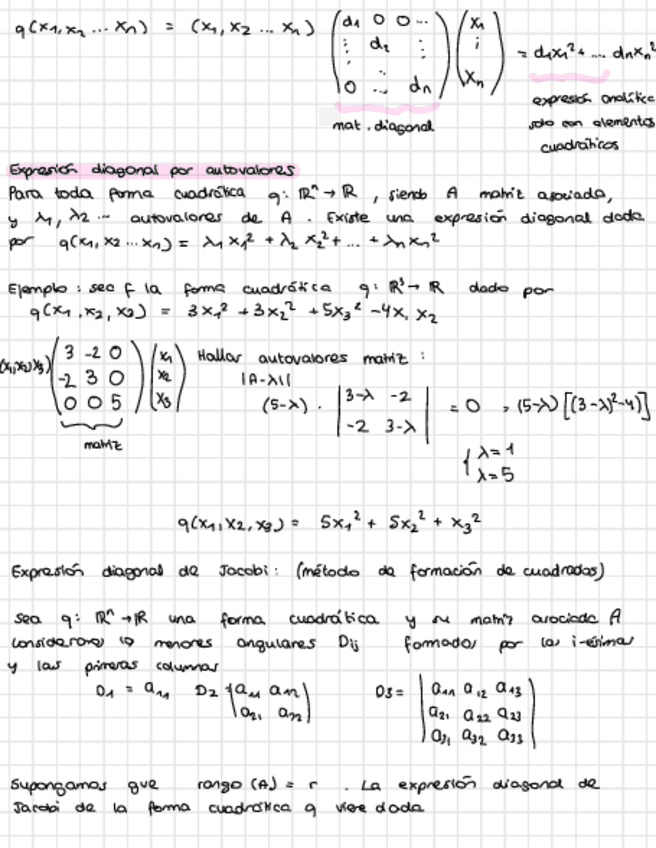 q(x₁,x₂ ... xₙ) = (x₁, x₂ ... xₙ) (d₁ 0 0 ... ; ⋮ d₂ ⋮ ; 0 ... dₙ) (x₁ ; ⋮ ; xₙ) = d₁x₁² + ... dₙxₙ²
mat. diagonal
expresión analítica
solo con elementos
cuadráticos
Expresión diagonal por autovalores
Para toda forma cuadrática q: ℝⁿ → ℝ , siendo A matriz asociada,
y λ₁, λ₂ ... autovalores de A . Existe una expresión diagonal dada
por q(x₁, x₂ ... xₙ) = λ₁ x₁² + λ₂ x₂² + ... + λₙ xₙ²
Ejemplo : sea f la forma cuadrática q: ℝ³ → ℝ dado por
q(x₁, x₂, x₃) = 3x₁² + 3x₂² + 5x₃² - 4x₁ x₂
(x₁,x₂,x₃) (3 -2 0 ; -2 3 0 ; 0 0 5) (x₁ ; x₂ ; x₃) Hallar autovalores matriz :
|A-λI|
(5-λ) · |3-λ -2 ; -2 3-λ| = 0 , (5-λ) [(3-λ)²-4]
matriz
{ λ = 1
λ = 5
q(x₁, x₂, x₃) = 5x₁² + 5x₂² + x₃²
Expresión diagonal de Jacobi : (método de formación de cuadrados)
Sea q: ℝⁿ → ℝ una forma cuadrática y su matriz asociada A
consideramos menores angulares Dij formados por las i-ésimas
y las primeras columnas
D₁ = a₁₁ D₂ |a₁₁ a₁₂ ; a₂₁ a₂₂| D₃ = |a₁₁ a₁₂ a₁₃ ; a₂₁ a₂₂ a₂₃ ; a₃₁ a₃₂ a₃₃|
Supongamos que rango (A) = r . La expresión diagonal de
Jacobi de la forma cuadrática q viene dada